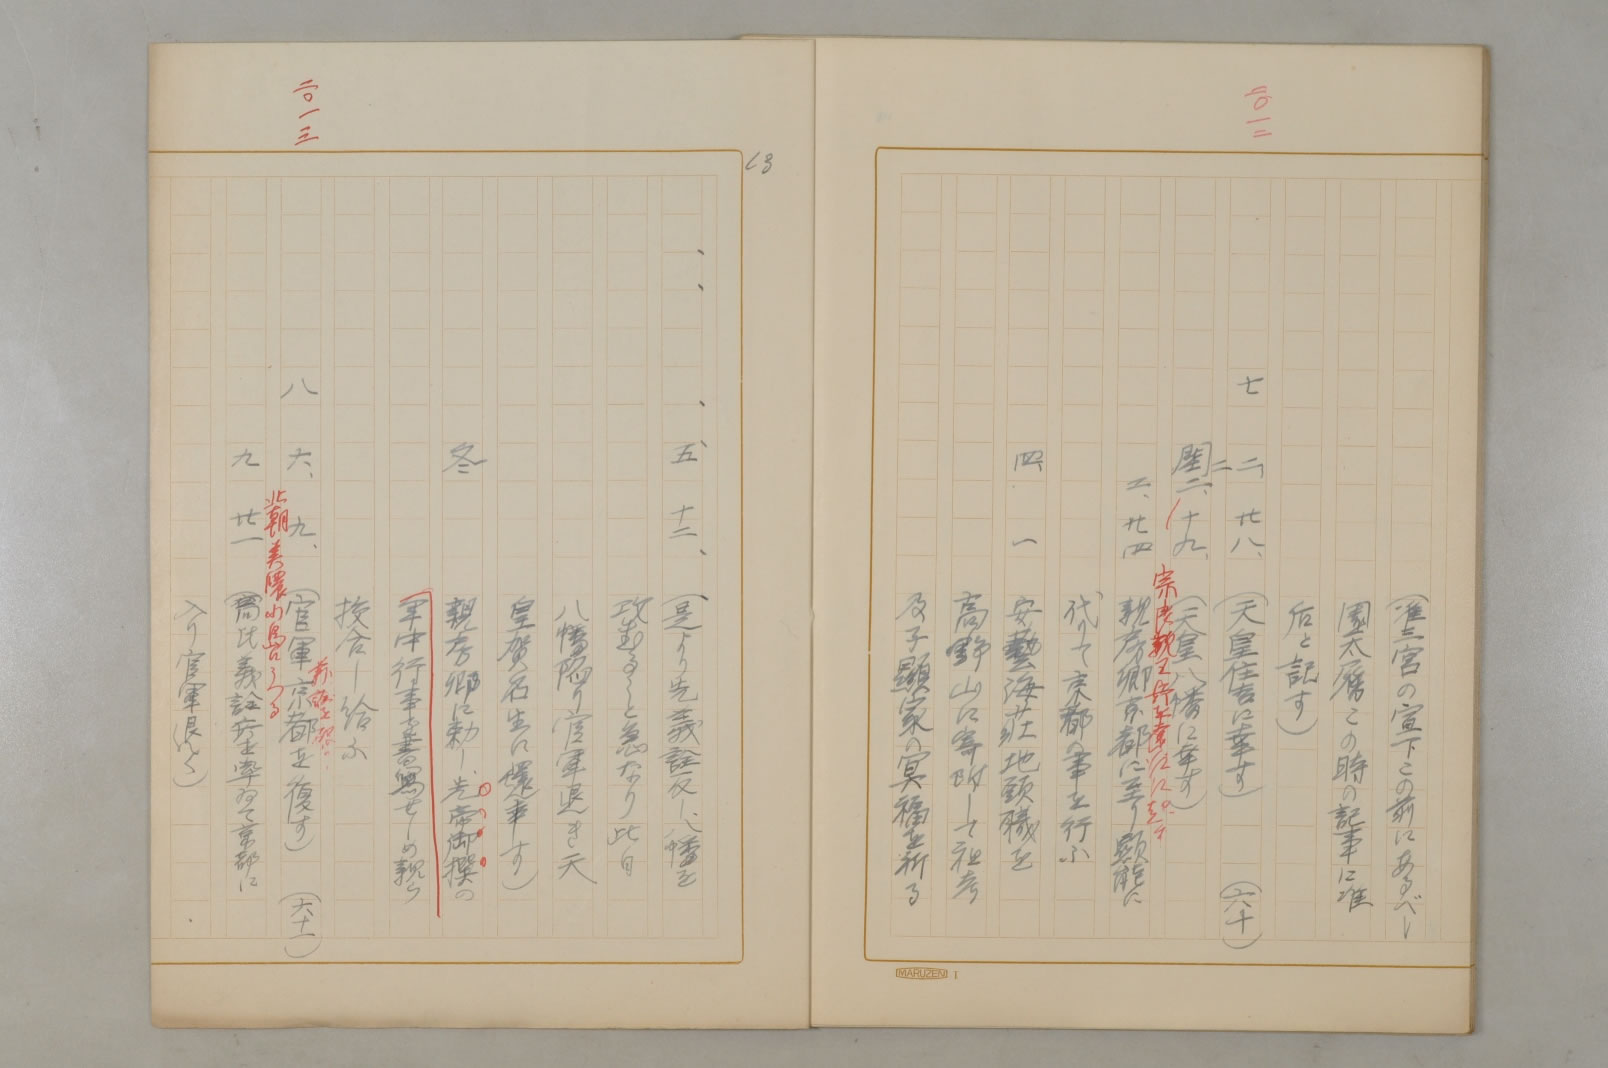 二〇一二
(准三宮の宣下この前にあるべし
園太暦この時の記事に准
后と記す)
七 二、廿八、 (天皇住吉に幸す) (六十)
閏二、十九、 (天皇八幡に幸す)
宗良親王兵を
二、廿四 親房卿京都に至り顕能に
代りて京都の事を行ふ
四、一 安藝海荘地頭職を
高野山に寄附して祖考
及子顕家の冥福を祈る
MARUZEN 1
二〇一三
63
、、、五、十二、 (是より先義詮反し八幡を
攻むること急なり此日
八幡陥り官軍退き天
皇賀名生に還幸す)
冬 親房卿に勅し先帝御撰の
年中行事を書写せしめ親ら
校合し給ふ
八 六、九、 (官軍京都を復す) (六十一)
北朝美濃小島にうつる
九 廿一 (尊氏義詮兵を率ゐて京都に
入り官軍退く)